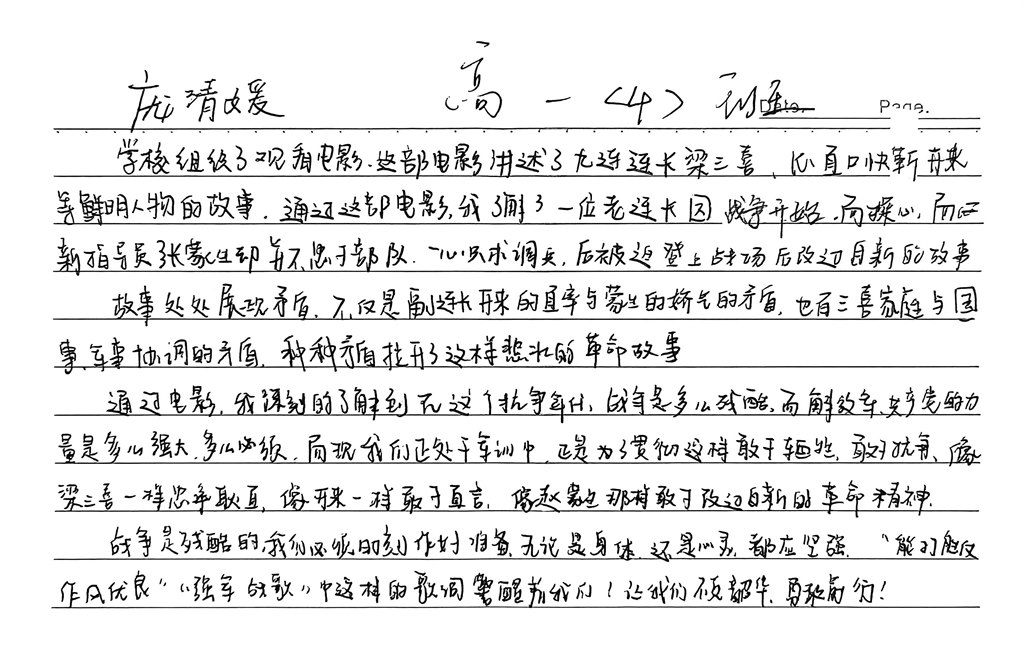 庞清媛 高一<4>班 Date. Page.
学校组织了观看电影.这部电影讲述了九连连长梁三喜、心直口快靳开来
等鲜明人物的故事.通过这部电影,我了解了一位老连长因战争开始.而操心,而区
新指导员张蒙生却并不忠于部队.一心只求调兵,后被迫登上战场后改过自新的故事
故事处处展现矛盾.不仅是副连长开来的直率与蒙生的娇气的矛盾,也有三喜家庭与国
事,军事协调的矛盾,种种矛盾拉开了这样悲壮的革命故事
通过电影,我深刻的了解到在这个抗争年代,战争是多么残酷,而解放军.共产党的力
量是多么强大,多么必须.而现我们正处于军训中,正是为了贯彻这样敢于牺牲,敢于抗争、像
梁三喜一样忠争耿直,像开来一样敢于直言,像赵蒙生那样敢于改过自新的革命精神.
战争是残酷的,我们必须时刻作好准备,无论是身体.还是心灵,都应坚强."能打胜仗
作风优良"《强军战歌》中这样的歌词警醒着我们!让我们不负韶华,勇敢前行!